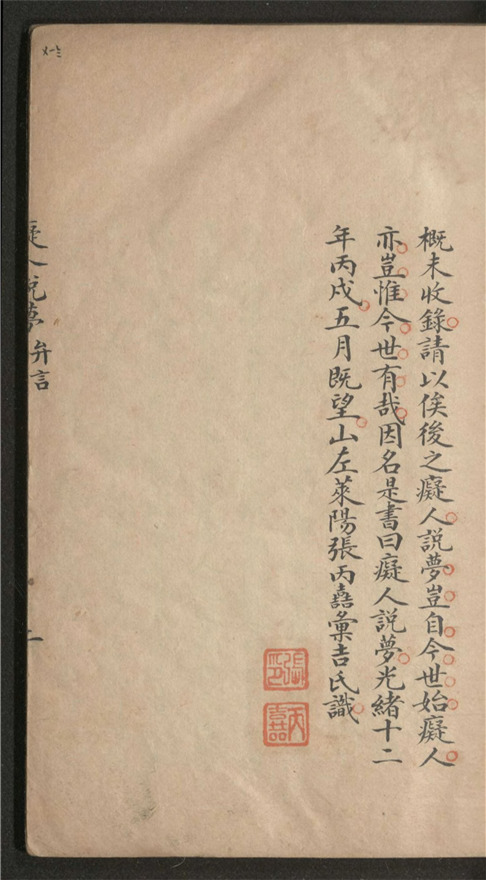 概未收錄請以俟後之癡人說夢豈自今世始癡人
亦豈惟今世有哉因名是書曰癡人說夢光緒十二
年丙戌五月既望山左萊陽張丙嚞彙吉氏識
張
印
丙
嚞
癡人說夢 弁言